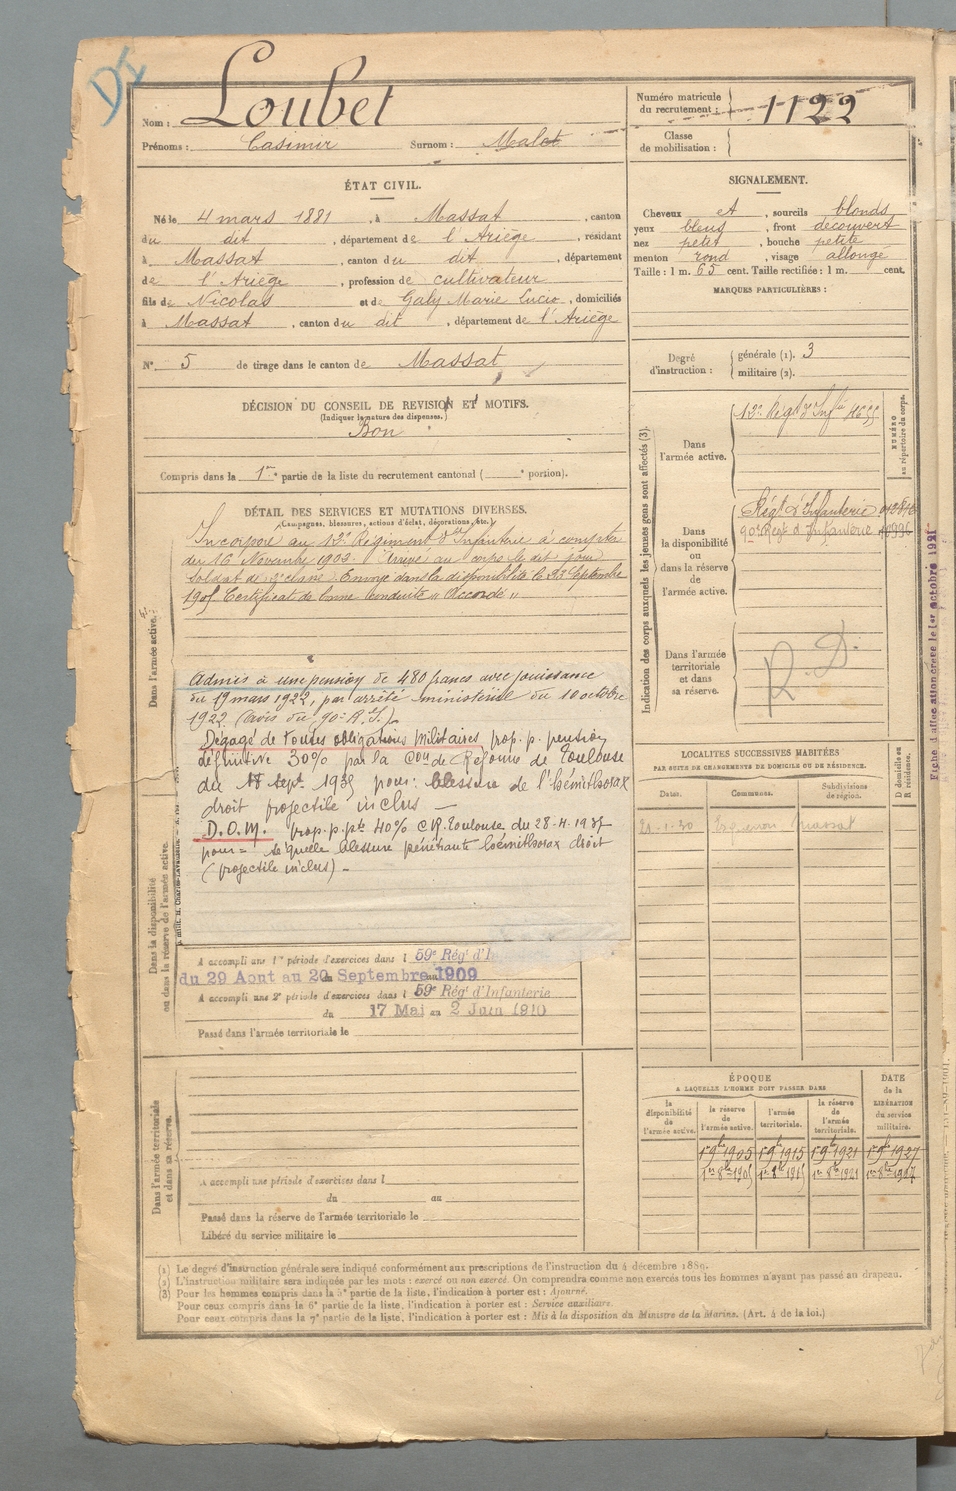 DI
Nom : Loubet
Prénoms : Casimir Surnom : Malot
Numéro matricule du recrutement : 1122
Classe de mobilisation :
ÉTAT CIVIL.
Né le 4 mars 1881, à Massat, canton
du dit, département de l'Ariège, résidant
à Massat, canton du dit, département
de l'Ariège, profession de cultivateur
fils de Nicolas et de Galy Marie Lucie, domiciliés
à Massat, canton du dit, département de l'Ariège
N° 5 de tirage dans le canton de Massat
DÉCISION DU CONSEIL DE REVISION ET MOTIFS.
(Indiquer la nature des dispenses.)
Bon
Compris dans la 1re partie de la liste du recrutement cantonal ( e portion).
SIGNALEMENT.
Cheveux et, sourcils blonds
yeux bleus, front découvert
nez petit, bouche petite
menton rond, visage allongé
Taille : 1 m. 65 cent. Taille rectifiée : 1 m. cent.
MARQUES PARTICULIÈRES :
Degré d'instruction : générale (1). 3
militaire (2).
DÉTAIL DES SERVICES ET MUTATIONS DIVERSES.
(Campagnes, blessures, actions d'éclat, décorations, etc.)
Incorporé au Régiment d'Infanterie à compter
du 16 Novembre Arrivé au corps le dit jour
soldat de 2e classe. Envoyé dans la disponibilité le Septembre
1905 Certificat de bonne conduite " Accordé "
Admis à une pension de 480 francs avec jouissance
du 19 mars 1922, par arrêté ministériel du 10 octobre
1922 (avis du 90e R.I.)
Dégagé de toutes obligations Militaires prop. p. pension
définitive 30% par la Con de Réforme de Toulouse
du sept 1935 pour : blessure de l'hémithorax
droit projectile inclus —
D.O.M. prop. p. pte 40% C.R. Toulouse du 28-4-1937
pour = séquelle blessure pénétrante hémithorax droit
(projectile inclus) -
A accompli une 1re période d'exercices dans l 59e Régt d'In
du 29 Aout au 20 Septembre 1909
A accompli une 2e période d'exercices dans l 59e Régt d'Infanterie
du 17 Mai au 2 Juin 1910
Passé dans l'armée territoriale le
Dans l'armée active.
Dans la disponibilité
ou dans la réserve de l'armée active.
Dans l'armée territoriale
et dans sa réserve.
A accompli une période d'exercices dans l
du au
Passé dans la réserve de l'armée territoriale le
Libéré du service militaire le
Indication des corps auxquels les jeunes gens sont affectés (3).
NUMÉRO
au répertoire du corps.
Dans
l'armée active.
Régt d'Infie
Dans
la disponibilité
ou
dans la réserve
de
l'armée active.
Régt d'Infanterie
90e Régt d'Infanterie
Dans l'armée
territoriale
et dans
sa réserve.
R. D.
Fiche d'affectation créée le 1er octobre 1921
LOCALITÉS SUCCESSIVES HABITÉES
PAR SUITE DE CHANGEMENTS DE DOMICILE OU DE RÉSIDENCE.
Dates. Communes. Subdivisions de région. D domicile ou R résidence.
massat
ÉPOQUE
A LAQUELLE L'HOMME DOIT PASSER DANS
DATE
de la
LIBÉRATION
du service
militaire.
la disponibilité de l'armée active. la réserve de l'armée active. l'armée territoriale. la réserve de l'armée territoriale.
1er 9bre 1905 1er 9bre 1915 1er 9bre 1921 1er 9bre 1927
1er 8bre 1905 1er 8bre 1915 1er 8bre 1921 1er 8bre 1927
(1) Le degré d'instruction générale sera indiqué conformément aux prescriptions de l'instruction du 4 décembre 1889.
(2) L'instruction militaire sera indiquée par les mots : exercé ou non exercé. On comprendra comme non exercés tous les hommes n'ayant pas passé au drapeau.
(3) Pour les hommes compris dans la 5e partie de la liste, l'indication à porter est : Ajourné.
Pour ceux compris dans la 6e partie de la liste, l'indication à porter est : Service auxiliaire.
Pour ceux compris dans la 7e partie de la liste, l'indication à porter est : Mis à la disposition du Ministre de la Marine. (Art. 4 de la loi.)